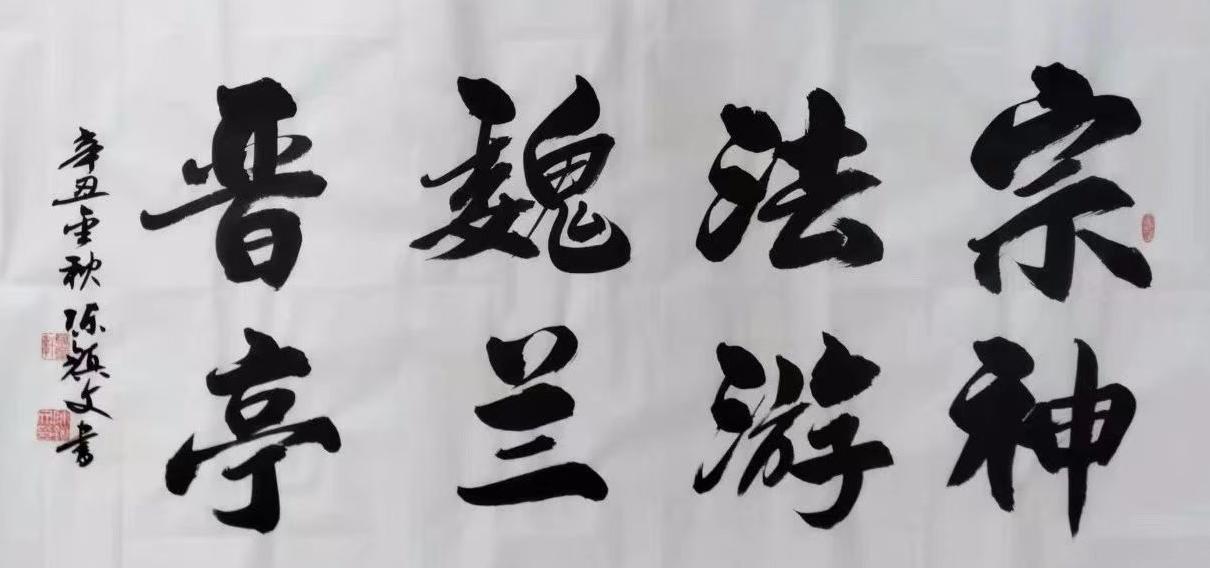 宗法魏晋
神游兰亭
辛丑金秋 陈 文书